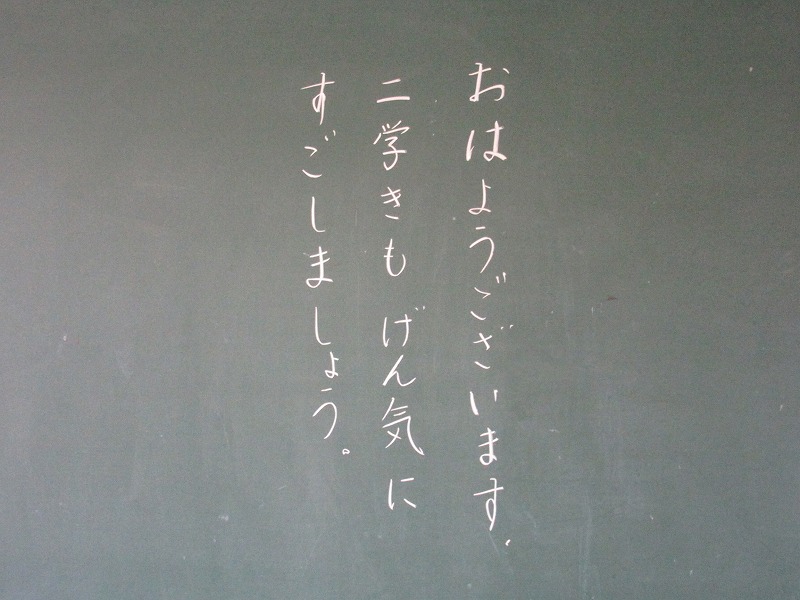 おはようございます。
二学きも げん気に
すごしましょう。